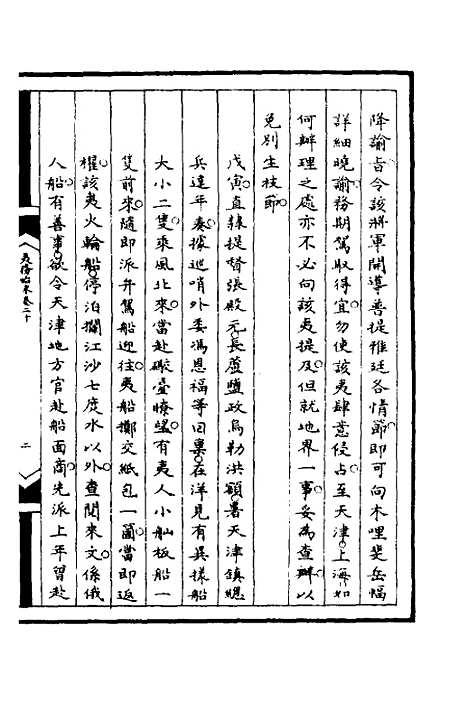 降諭旨令該將軍開導善提雅廷各情節即可向木哩斐岳幅
詳細曉諭務期駕馭得宜勿使該夷肆意侵占至天津上海如
何辦理之處亦不必向該夷提及但就地界一事妥為查辦以
免別生枝節
戊寅直隸提督張殿元長蘆鹽政烏勒洪額署天津鎮總
兵達年奏據巡哨外委馮恩福等回稟在洋見有異樣船
大小二隻乘風北來當赴礮臺瞭望有夷人小舢板船一
隻前來隨即派弁駕船迎往夷船擲交紙包一箇當即返
櫂該夷火輪船停泊攔江沙七度水以外查閱來文係俄
人船有善事欲令天津地方官赴船面商先派上年留赴
夷務始末卷二十
二